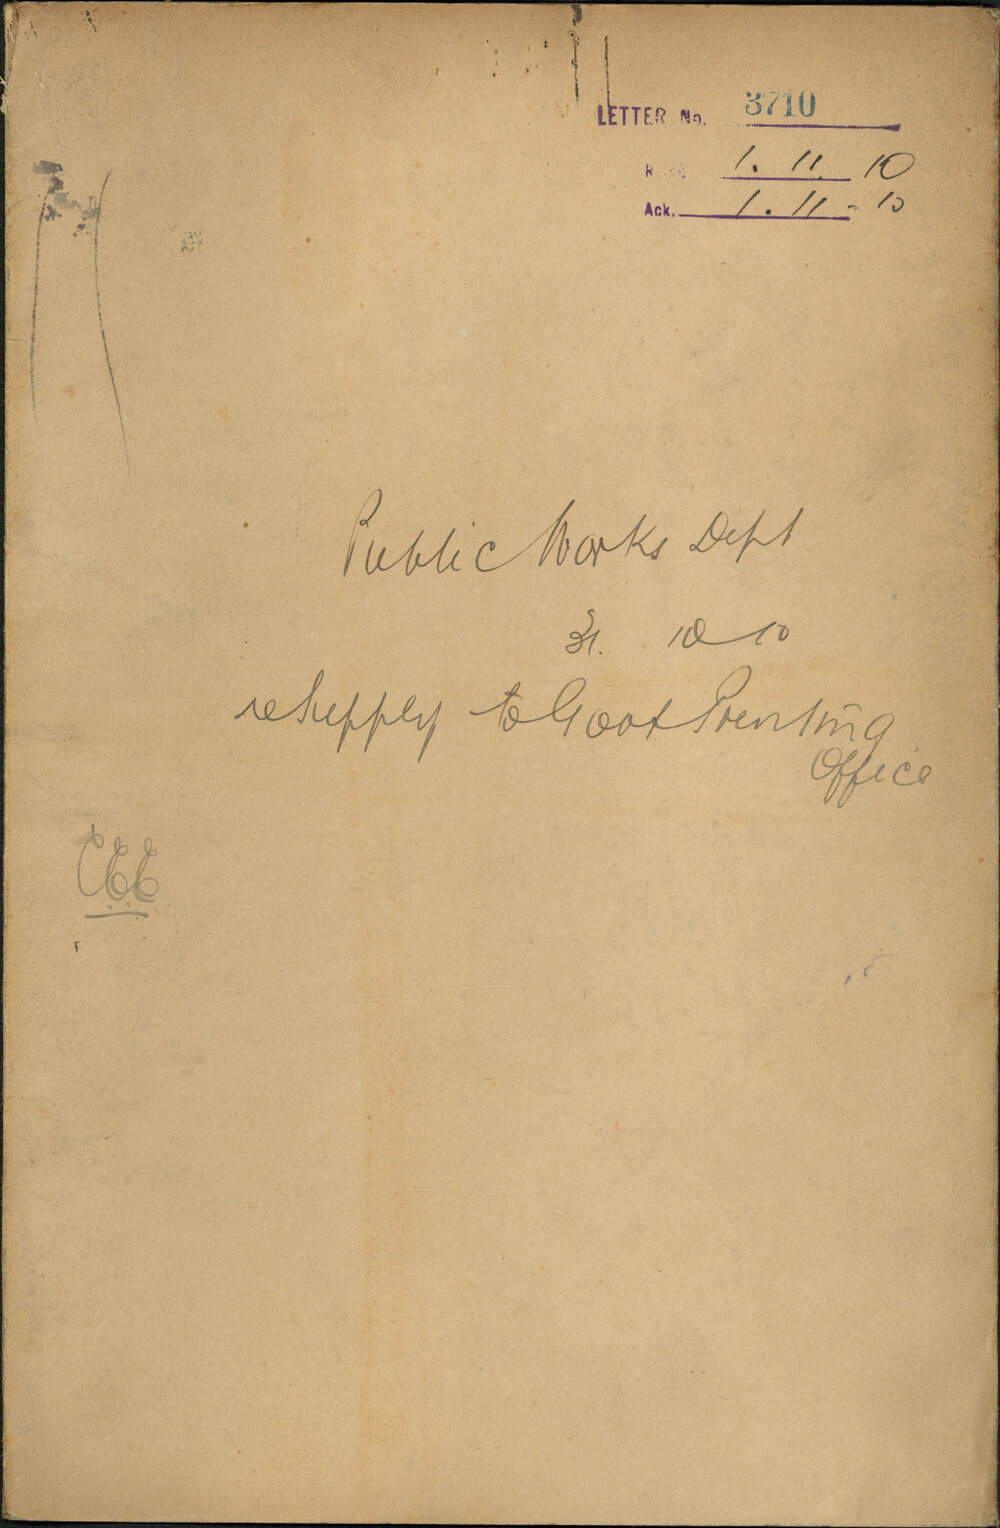 LETTER No. 3710
1. 11. 10
Ack. 1. 11 - 10
Public Works Dept
31. 10 10
re Supply to Govt Printing
Office